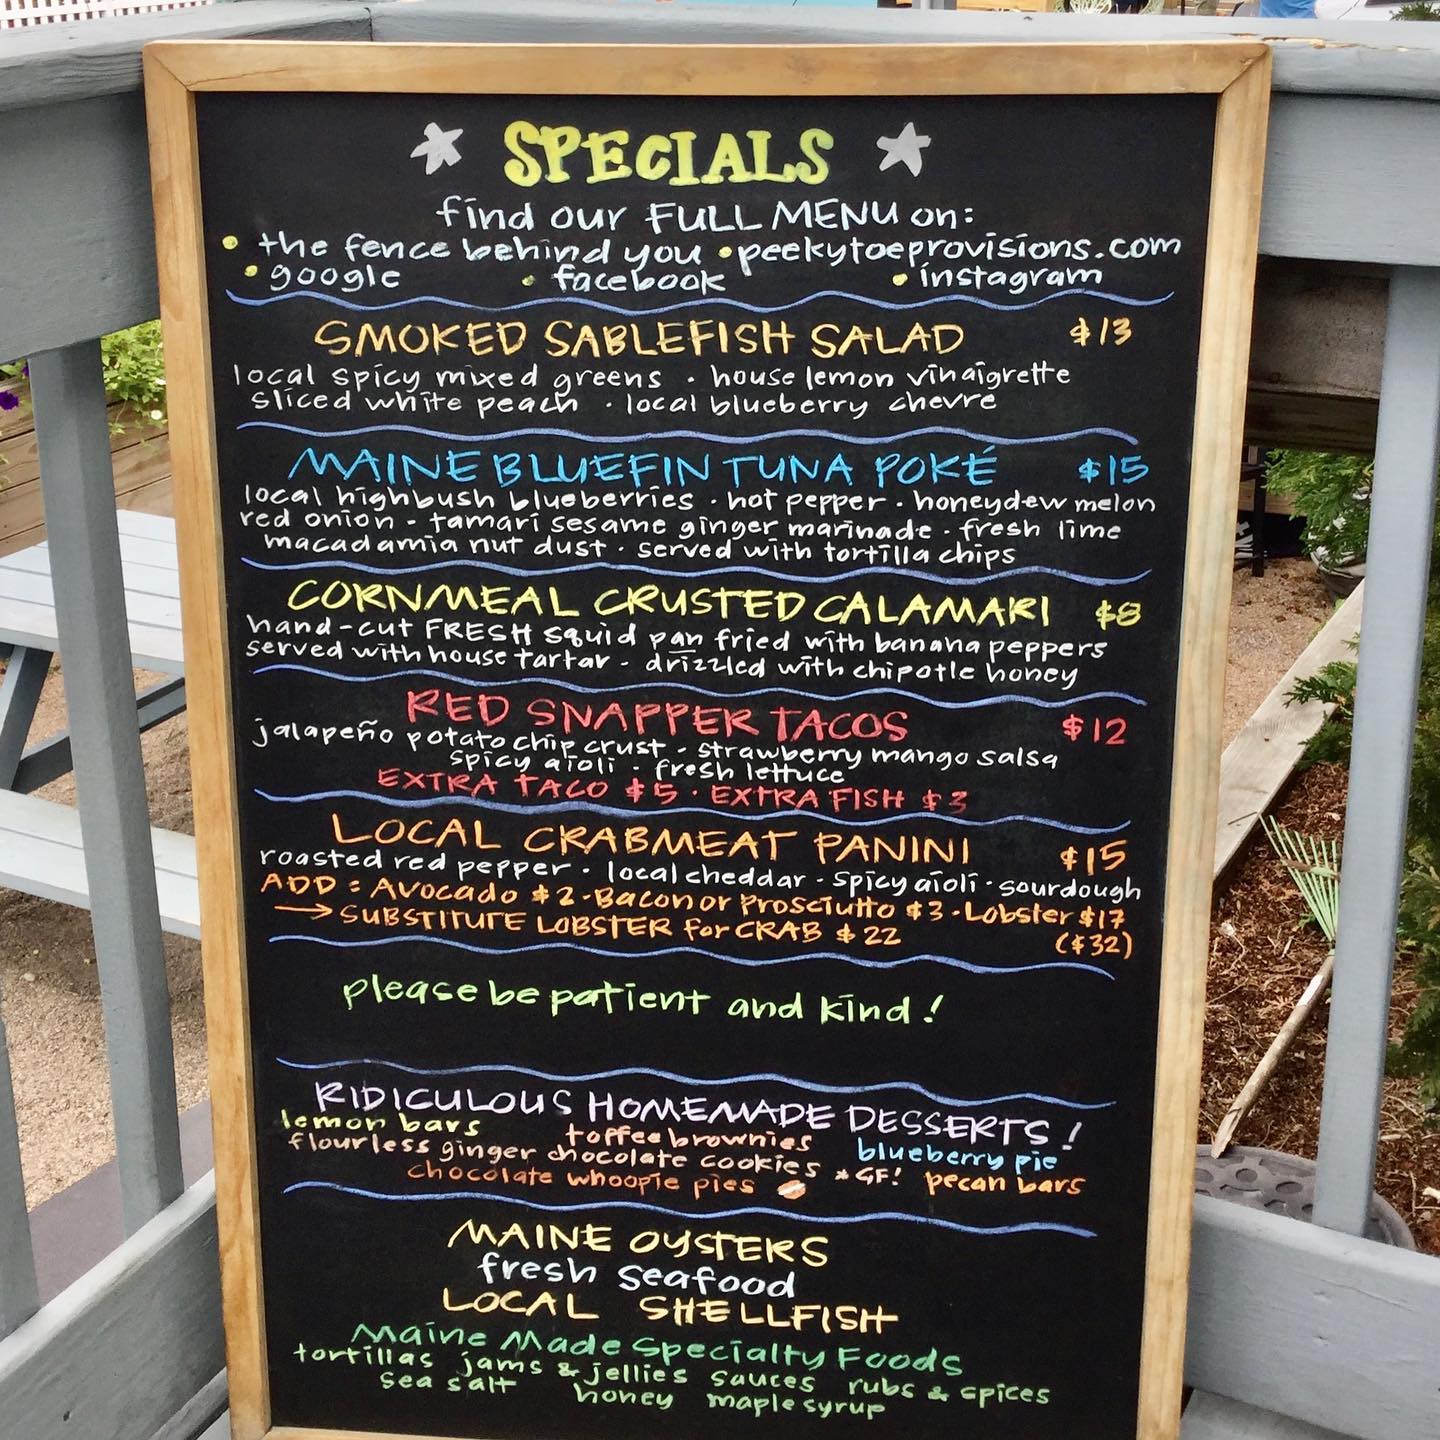 SPECIALS
find our FULL MENU on:
• the fence behind you • peekytoeprovisions.com
• google • facebook • instagram
SMOKED SABLEFISH SALAD $13
local spicy mixed greens · house lemon vinaigrette
sliced white peach · local blueberry chevre
MAINE BLUEFIN TUNA POKÉ $15
local highbush blueberries · hot pepper · honeydew melon
red onion - tamari sesame ginger marinade · fresh lime
macadamia nut dust · served with tortilla chips
CORNMEAL CRUSTED CALAMARI $8
hand-cut FRESH squid pan fried with banana peppers
served with house tartar - drizzled with chipotle honey
RED SNAPPER TACOS $12
jalapeño potato chip crust - strawberry mango salsa
spicy aioli · fresh lettuce
EXTRA TACO $5 · EXTRA FISH $3
LOCAL CRABMEAT PANINI $15
roasted red pepper · local cheddar · spicy aioli · sourdough
ADD: Avocado $2 · Bacon or Prosciutto $3 · Lobster $17
→ SUBSTITUTE LOBSTER for CRAB $22 ($32)
please be patient and kind!
RIDICULOUS HOMEMADE DESSERTS!
lemon bars toffee brownies blueberry pie
flourless ginger chocolate cookies *GF! pecan bars
chocolate whoopie pies
MAINE OYSTERS
fresh seafood
LOCAL SHELLFISH
Maine Made Specialty Foods
tortillas jams & jellies sauces rubs & spices
sea salt honey maple syrup